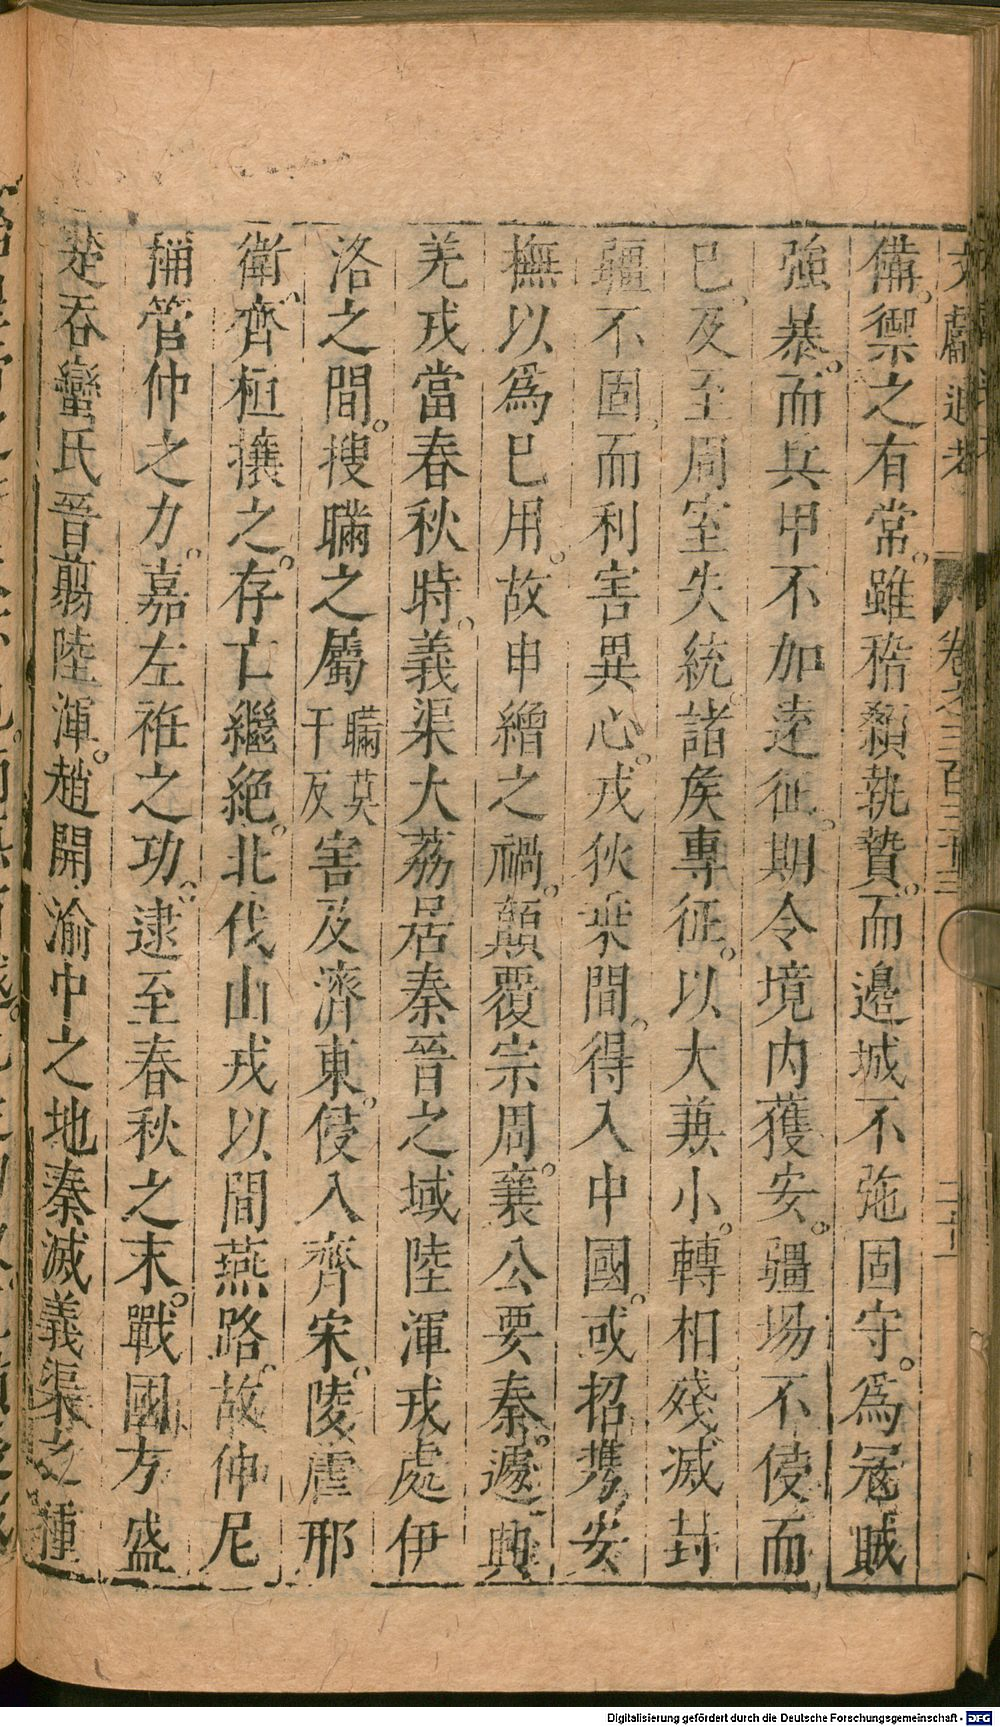 文獻通考 卷之三百三十三 二十
備禦之有常雖稽顙執贄而邊城不弛固守爲冦賊
強暴而兵甲不加遠征期令境内獲安疆埸不侵而
巳及至周室失統諸矦專征以大兼小轉相殘滅封
疆不固而利害異心戎狄乗間得入中國或招携安
撫以爲巳用故申繒之禍顛覆宗周襄公要秦遽興
羌戎當春秋時義渠大荔居秦晉之域陸渾戎處伊
洛之間搜瞞之屬瞞莫干反害及濟東侵入齊宋陵虐邢
衛齊桓攘之存亡繼絶北伐山戎以間燕路故仲尼
稱管仲之力嘉左袵之功逮至春秋之末戰國方盛
楚吞蠻氏晉翦陸渾趙開渝中之地秦滅義渠之種
Digitalisierung gefördert durch die Deutsche Forschungsgemeinschaft - DFG